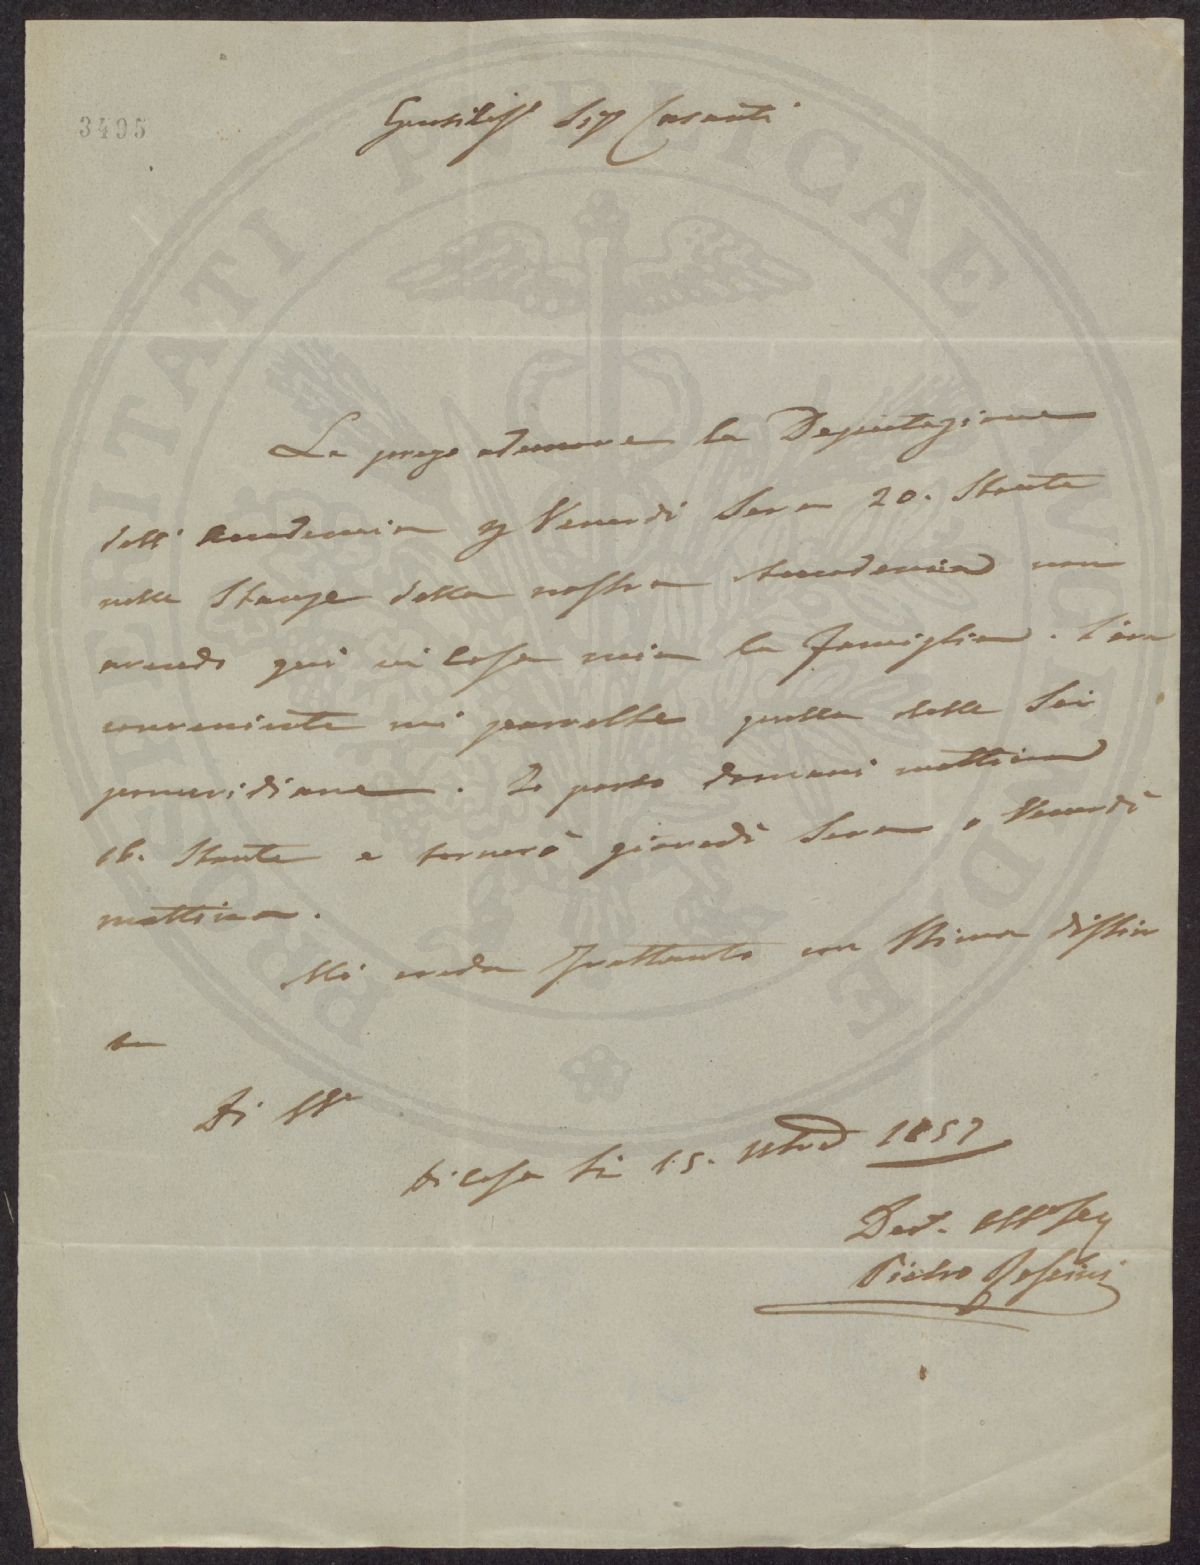 3495
Gentiliss Sig Casanti
La prego adunare la Deputazione
dell' Accademia p Venerdì Sera 20. Stante
nelle Stanze della nostra Accademia non
avendo qui in Casa mia la famiglia. L'ora
conveniente mi parrebbe quella delle Sei
pomeridiane. Io parto domani mattina
16. Stante e tornerò giovedì Sera o Venerdì
mattina.
Mi creda frattanto con Stima distin
ta
Di
Di Casa Li 15. 1857
Dev.
Pietro
PROSPERITATI PVBLICAE AVGENDAE